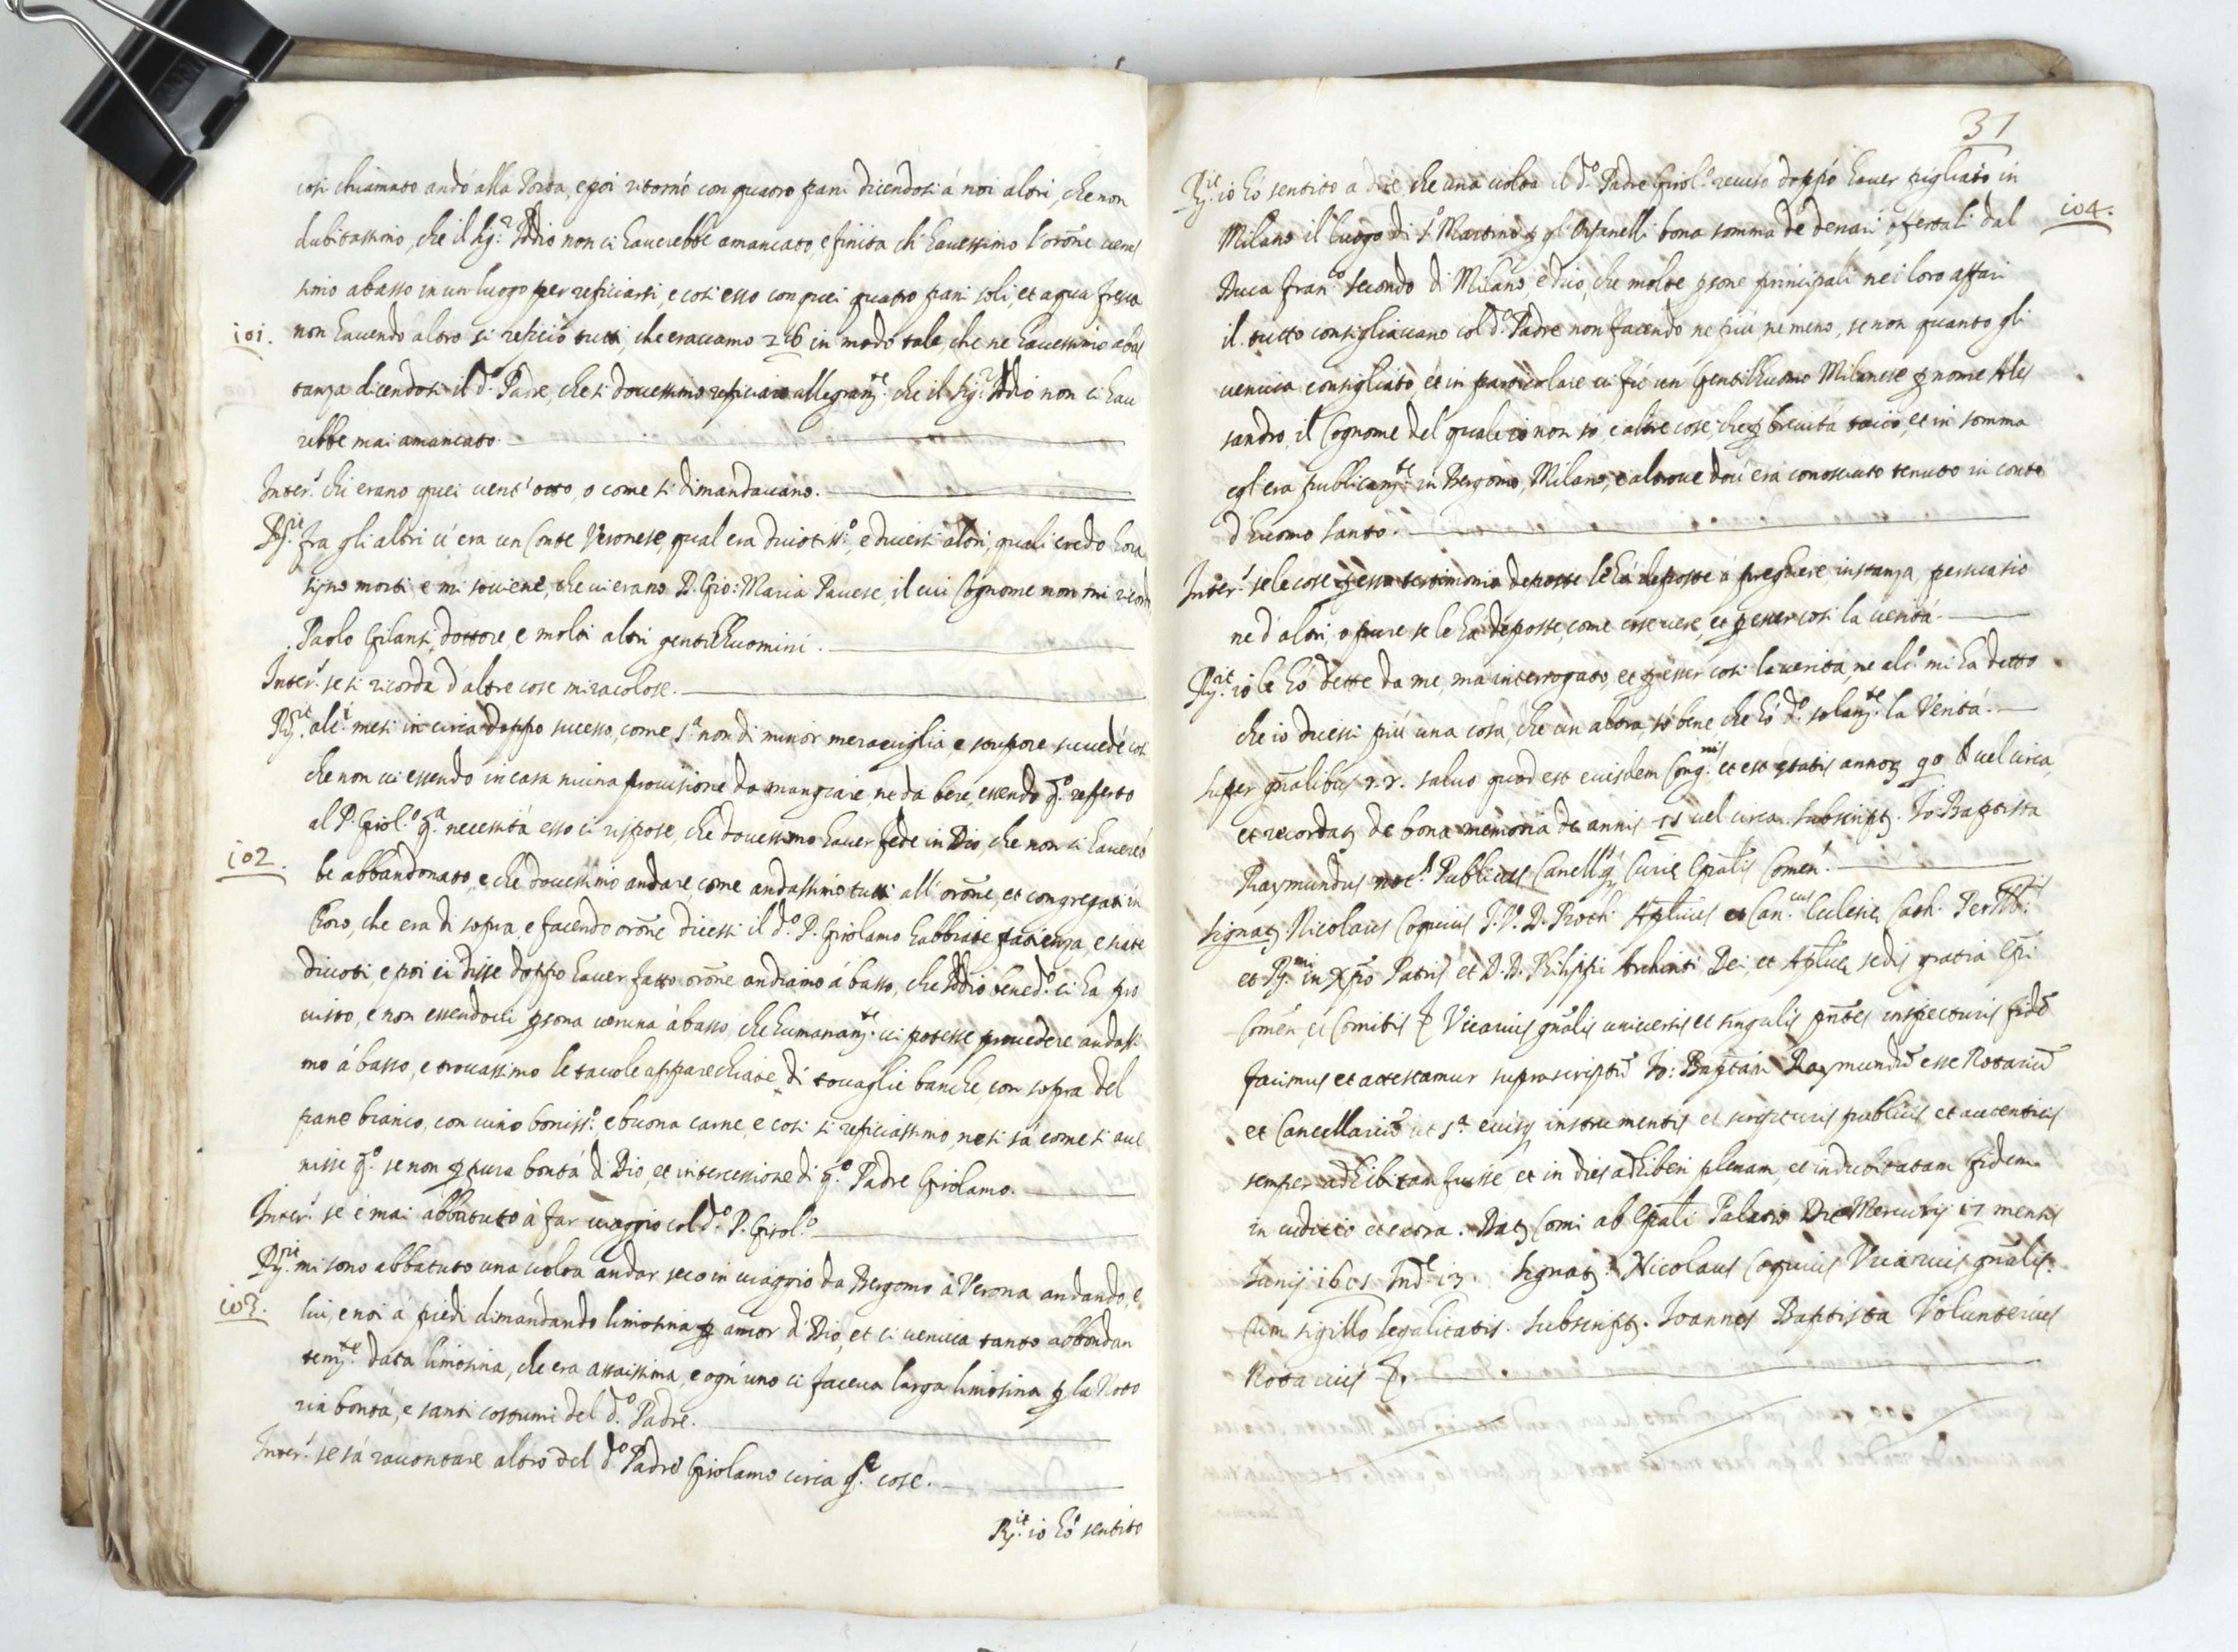 così chiamato andò alla Porta, e poi ritornò con quatro pani dicendosi à noi altri, che non
dubitassimo, che il Sig.r Iddio non ci hauerebbe amancato, e finita ch' hauessimo l'orõne venes
simo abasso in un luogo per reficiarsi, e così esso con quei quatro pani soli, et aqua fresca
101. non hauendo altro si reficiò tutti, che erauamo 28 in modo tale, che ne hauessimo abas
tanza dicendosi il d.o Padre, che si douessimo reficiare allegram.te che il Sig.r Iddio non ci hau
rebbe mai amancato.
Inter.s chi erano quei vent'otto, o come si dimandauano.
Rṣ.it fra gli altri ui era un Conte Veronese, qual era diuotiss.o, e diuersi altri, quali credo hora
sijno morti e mi souiene, che ui erano P. Gio: Maria Pauese, il cui Cognome non mi ricordo
Paolo Gilanti, dottore, e molti altri gentilhuomini.
Inter.s se si ricorda d'altre cose miracolose.
Rṣ.it alc.i mesi in circa doppo successo, come s.a non di minor merauiglia, e stupore succedè così
che non ui essendo in casa niuna prouisione da mangiare, ne da bere, essendo q.o referto
al P. Girol.o q.a necessità esso ci rispose, che douessimo hauer fede in Dio, che non ci hauereb
102. be abbandonato, e che douessimo andare, come andassimo tutti all'orõne, et congregati in
Choro, che era di sopra, e facendo orõne dicessi il d.o P. Girolamo habbiate patienza, e siate
diuoti, e poi ci disse doppo hauer fatto orõne andiamo à basso, che Iddio bened.o ci ha pro
uisto, e non essendoui ꝑsona ueruna à basso, che humanam.te ui potesse prouedere andassi
mo à basso, e trouassimo le tauole apparechiate di touaglie bianche, con sopra del
pane bianco, con uino boniss.o e buona carne, e così si reficiassimo, ne si sà come si aue
nisse q.o se non ꝑ pura bontà di Dio, et intercessione di q.o Padre Girolamo.
Inter.s se è mai abbatuto à far uiaggio col d.o P. Girol.o
Rṣ.it mi sono abbatuto una uolta andar seco in uiaggio da Bergomo à Verona andando, e
103. lui, e noi à piedi dimandando limosina ꝑ amor di Dio, et ci ueniua tanto abbondan
tem.te data limosina, che era assaissima, e ogn'uno ci faceua larga limosina ꝑ la Noto
ria bontà, e santi costumi del d.o Padre.
Inter.s se sà racontare altro del d.o Padre Girolamo circa q.e cose.
Rṣ.it io hò sentito
37
Rṣ.it io hò sentito a dire, che una uolta il d.o Padre Girol.o recusò doppò hauer pigliato in
104.
Milano il luogo di S.o Martino ꝑ gl'Orfanelli bona somma de denari offertali dal
Duca Fran.co secondo di Milano, e dico, che molte ꝑsone principali nei loro affari
il tutto consigliauano col d.o Padre non facendo ne più, ne meno, se non quanto gli
ueniua consigliato, et in particolare ui fù un Gentilhuomo Milanese ꝑ nome Ales
sandro, il Cognome del quale io non sò, e altre cose, che ꝑ breuità taccio, et in somma
egl'era publicam.te in Bergomo, Milano, e altroue dou'era conosciuto tenuto in conto
d'huomo santo.
Inter.s se le cose ꝑ esso testimonio deposte le hà deposte à preghiere, instanza, persuasio
ne d'altri, o pure se le hà deposte, come cose uere, et ꝑ esser così la uerità.
Rṣ.it io le hò dette da me, ma interrogato, et ꝑ esser così la uerità, ne alc.o mi hà detto
che io dicessi più una cosa, che un altra, sò bene, che hò d.o solam.te la Verità.
Super gñalibus r.r. saluo quod est eiusdem Cong.nis et est ętatis annoꝝ 90 uel circa,
et recordaꝫ de bona memoria de annis uel circa. subscriptꝫ. Io Baptista
Raymundus not.s Publicus Canell.s Curię Epãlis Comen.s
Signatꝫ Nicolaus Coquius I.V.D. Proth. Aplicus et Can.cus Ecclesię Cath. Per Ill.tris
et R.mi in Xpõ Patris et D.D. Philippi Archinti Dei, et Aplicę sedis gratia Epi
Comẽn, et Comitis Vicarius gñalis uniuersis et singulis pñtes inspecturis fidẽ
facimus et attestamur suprascriptũ Io: Baptãm Raymundũ esse Notariũ
et Cancellariũ ut s.a eiusꝗ instrumentis et scripturis publicis et autenticis
semper adhibitam fuisse, et in dies adhiberi plenam, et indubitatam fidem
in iuditio et extra. Datꝫ Comi ab Epãli Palatio Die Mercurij mensis
Junij Ind.e 13. Signatꝫ. Nicolaus Coquius Vicarius gñalis.
cum sigillo legalitatis. subscriptꝫ. Ioannes Baptista Volunterius
Notarius